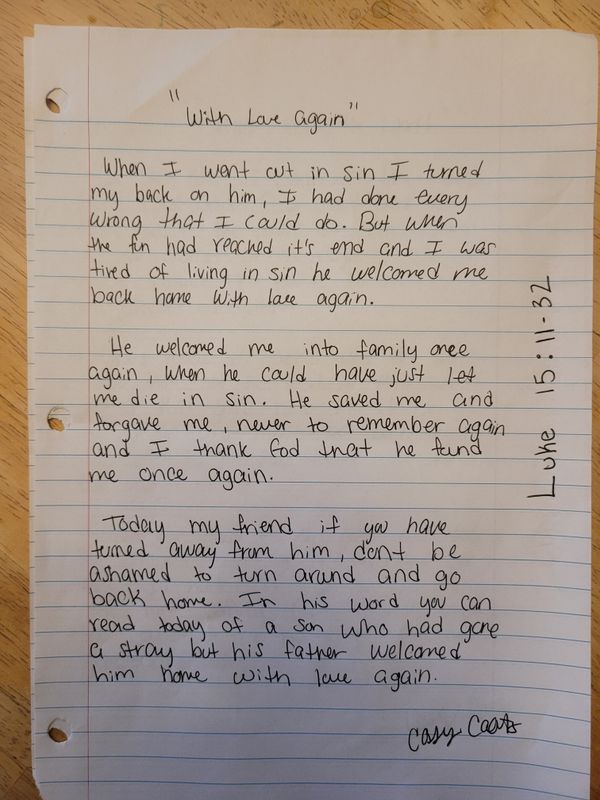 "With Love Again"
When I went out in sin I turned
my back on him, I had done every
wrong that I could do. But when
the fun had reached it's end and I was
tired of living in sin he welcomed me
back home with love again.
He welcomed me into family once
again, when he could have just let
me die in sin. He saved me and
forgave me, never to remember again
and I thank God that he fund
me once again.
Today my friend if you have
turned away from him, dont be
ashamed to turn arund and go
back home. In his word you can
read today of a son who had gone
a stray but his father welcomed
him home with love again.
Luke 15:11-32